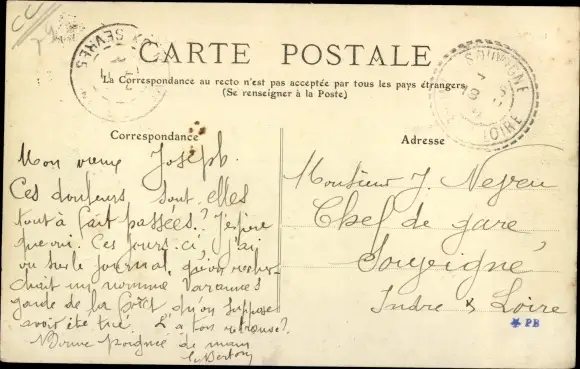 CARTE POSTALE
La Correspondance au recto n'est pas acceptée par tous les pays étrangers
(Se renseigner à la Poste)
Correspondance
Mon vieux Joseph.
Ces douleurs sont elles
tout à fait passées? J'espère
que oui. Ces jours-ci, j'ai
vu sur le journal, qu'on recher-
chait un nommé Varennes
garde de la forêt, qu'on suppose
avoir été tué. L'a-t-on retrouvé?
Bonne poignée de main
Adresse
Monsieur J. Neveu
Chef de gare
Souvigné
Indre & Loire
SEVRES
SOUVIGNE
LOIRE
PB